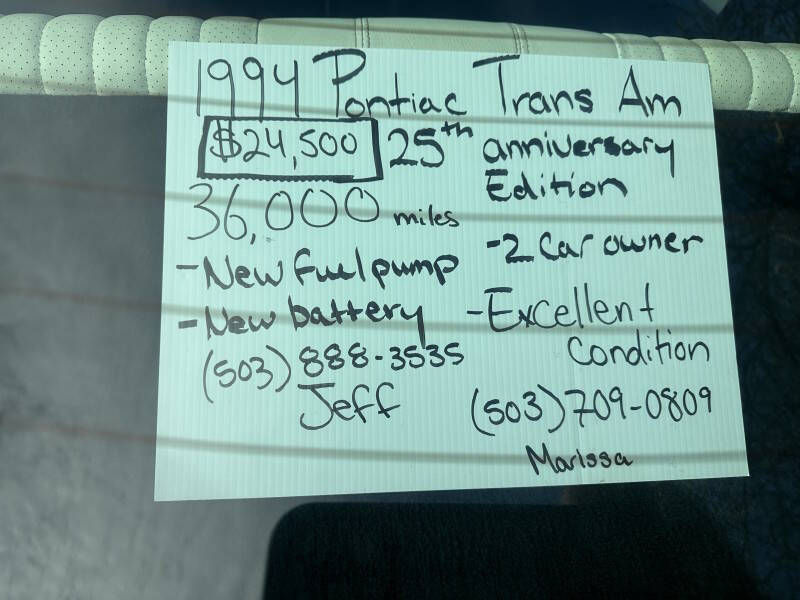 1994 Pontiac Trans Am
$24,500 25th anniversary
Edition
36,000 miles
-2 Car owner
-New fuel pump
-New battery
-Excellent
Condition
(503) 888-3535
Jeff
(503) 709-0809
Marissa